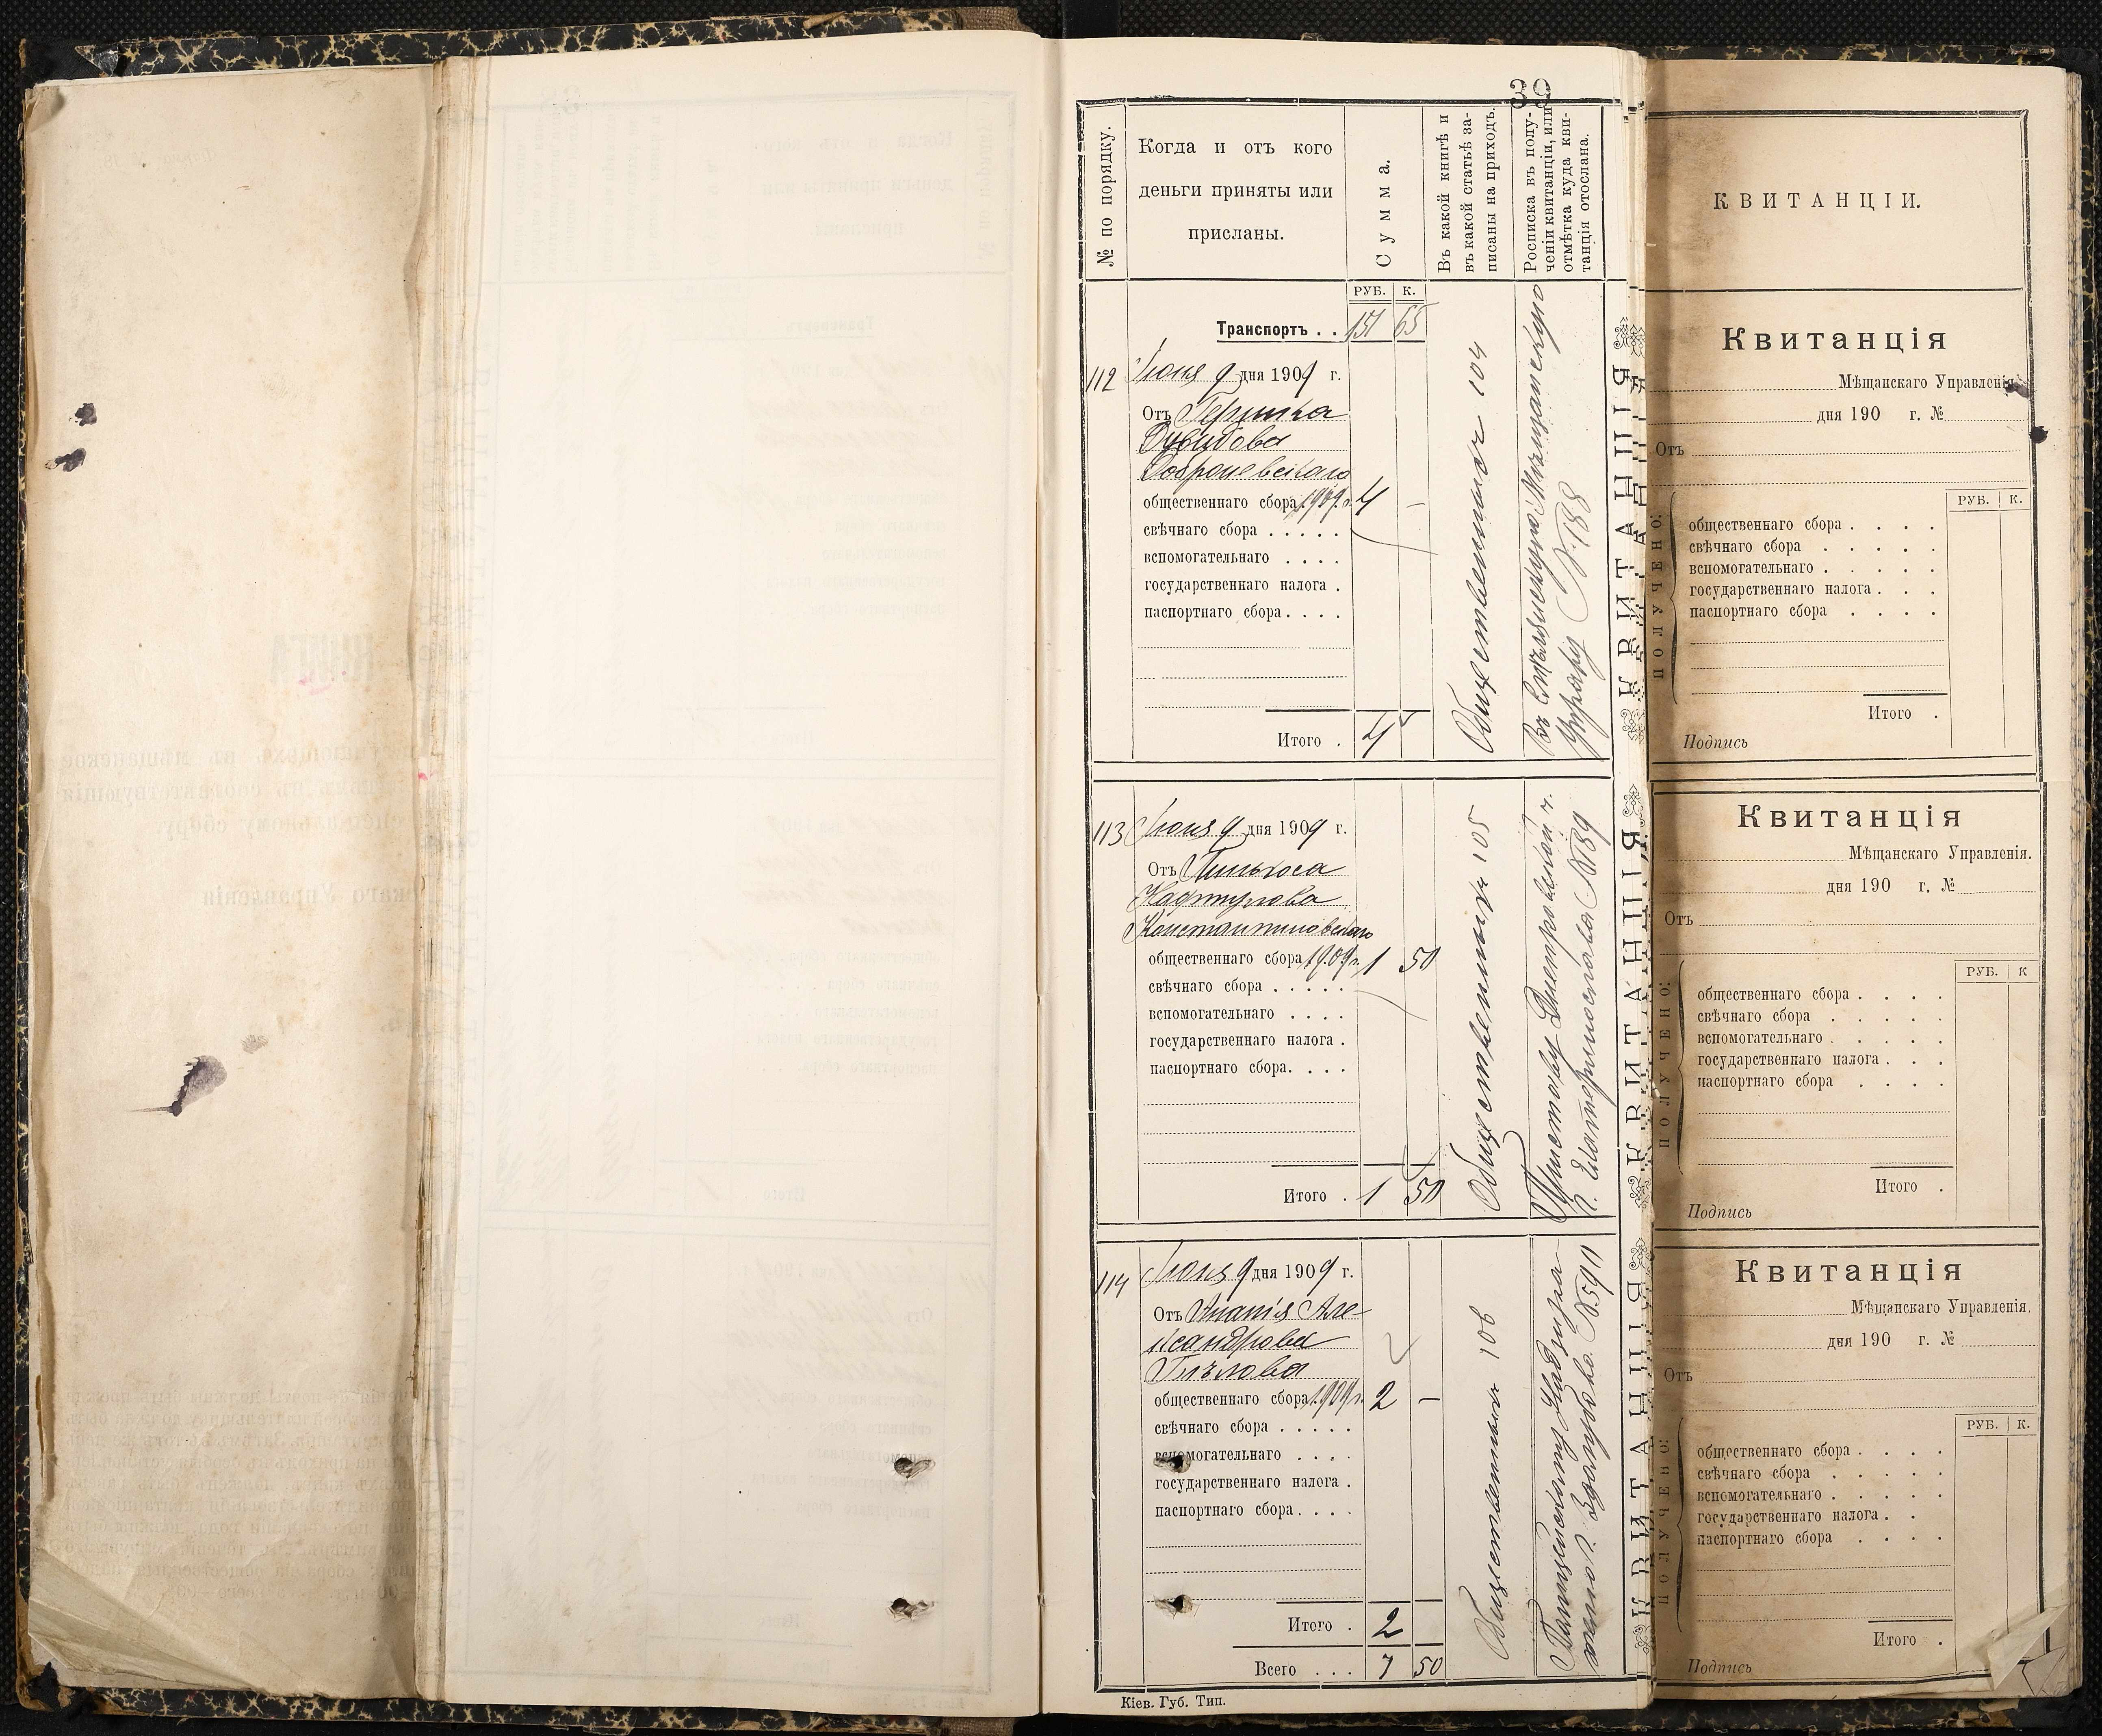 39
№ по порядку.
Когда и отъ кого
деньги приняты или
присланы.
Сумма.
Въ какой книгѣ и
въ какой статьѣ за-
писаны на приходъ.
Росписка въ полу-
ченіи квитанціи, или
отмѣтка куда кви-
танція отослана.
РУБ. К.
Транспортъ . . 151 65
112 Іюня 9 дня 1909 г.
Отъ Гершка
Дувидова
Доброневскаго
общественнаго сбора 1909 г. 4 —
свѣчнаго сбора . . . . .
вспомогательнаго . . . .
государственнаго налога .
паспортнаго сбора . . . .
Итого . 4
Общественныхъ 104
Въ Смѣлянскую Мѣщанскую
Управу №188
КВИТАНЦІЯ
113 Іюня 9 дня 1909 г.
Отъ Пинькоса
Нафтулова
Константиновскаго
общественнаго сбора 1909 г. 1 50
свѣчнаго сбора . . . . .
вспомогательнаго . . . .
государственнаго налога .
паспортнаго сбора. . . .
Итого . 1 50
Общественныхъ 105
Приставу Днепровской ч.
г. Екатеринослава №189
КВИТАНЦІЯ
114 Іюня 9 дня 1909 г.
Отъ Ананія Але-
ксандрова
общественнаго сбора 1909 г. 2 —
свѣчнаго сбора . . . . .
вспомогательнаго . . . .
государственнаго налога .
паспортнаго сбора . . . .
Итого . 2
Всего . . . 7 50
Общественныхъ 106
КВИТАНЦІЯ
Кіев. Губ. Тип.
КВИТАНЦІИ.
Квитанція
Мѣщанскаго Управленія
дня 190 г. №
Отъ
ПОЛУЧЕНО:
РУБ. К.
общественнаго сбора . . . .
свѣчнаго сбора . . . . .
вспомогательнаго . . . . .
государственнаго налога . . .
паспортнаго сбора . . . .
Итого .
Подпись
Квитанція
Мѣщанскаго Управленія.
дня 190 г. №
Отъ
ПОЛУЧЕНО:
РУБ. К
общественнаго сбора . . . .
свѣчнаго сбора . . . . .
вспомогательнаго . . . . .
государственнаго налога . . .
паспортнаго сбора . . . .
Итого .
Подпись
Квитанція
Мѣщанскаго Управленія.
дня 190 г. №
Отъ
ПОЛУЧЕНО:
РУБ. К.
общественнаго сбора . . . .
свѣчнаго сбора . . . . .
вспомогательнаго . . . . .
государственнаго налога . .
паспортнаго сбора . . . .
Итого .
Подпись